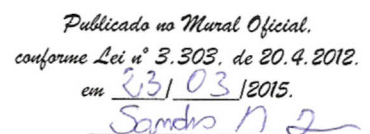 Publicado no Mural Oficial,
conforme Lei nº 3.303, de 20.4.2012.
em 23/ 03 /2015.
Sandro